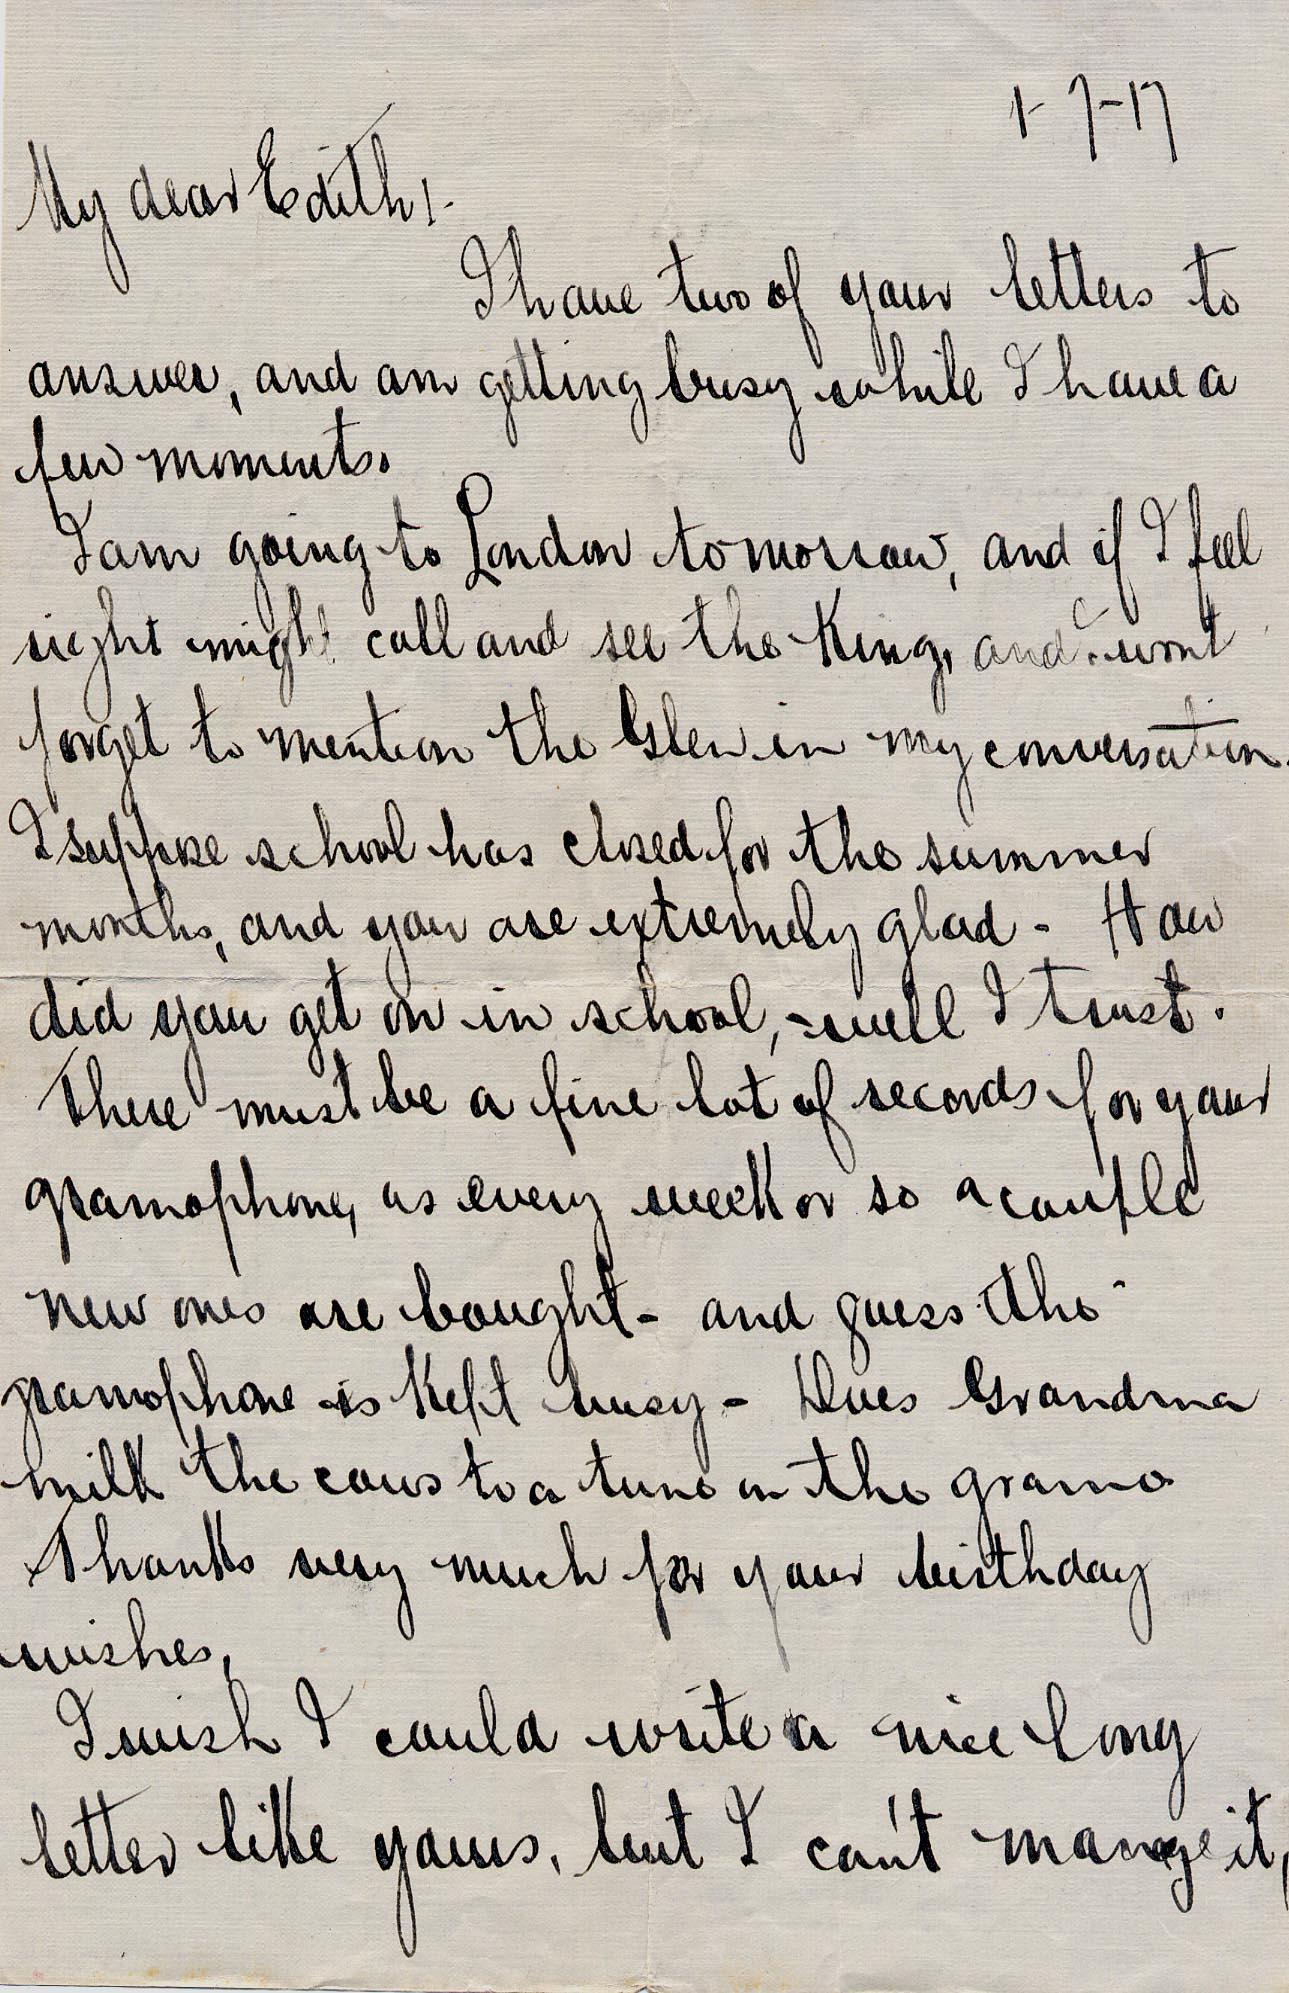 1-7-17
My dear Edith!-
I have two of your letters to
answer, and am getting busy while I have a
few moments.
I am going to London tomorrow, and if I feel
right might call and see the King, and wont
forget to mention the Glen in my conversation.
I suppose school has closed for the summer
months, and you are extremely glad - How
did you get on in school, - well I trust.
There must be a fine lot of records for your
gramophone, as every week or so a couple
new ones are bought - and guess the
gramophone is kept busy - Does Grandma
milk the cows to a tune on the gramo
Thanks very much for your birthday
wishes,
I wish I could write a nice long
letter like yours, but I can't mange it,